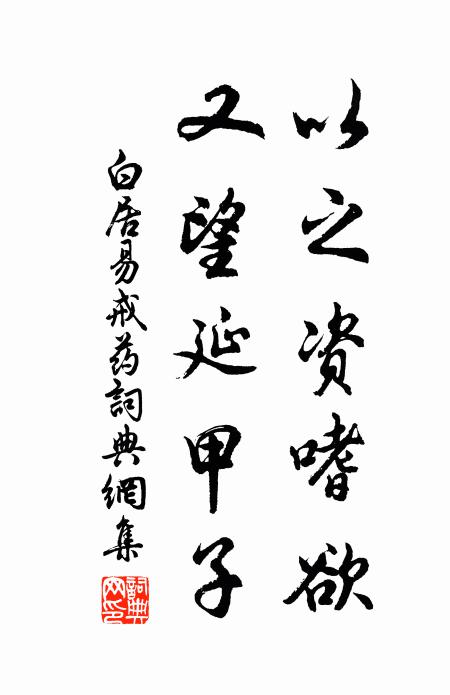 以之资嗜欲
又望延甲子
白居易戒药詞典網集
詞典網印